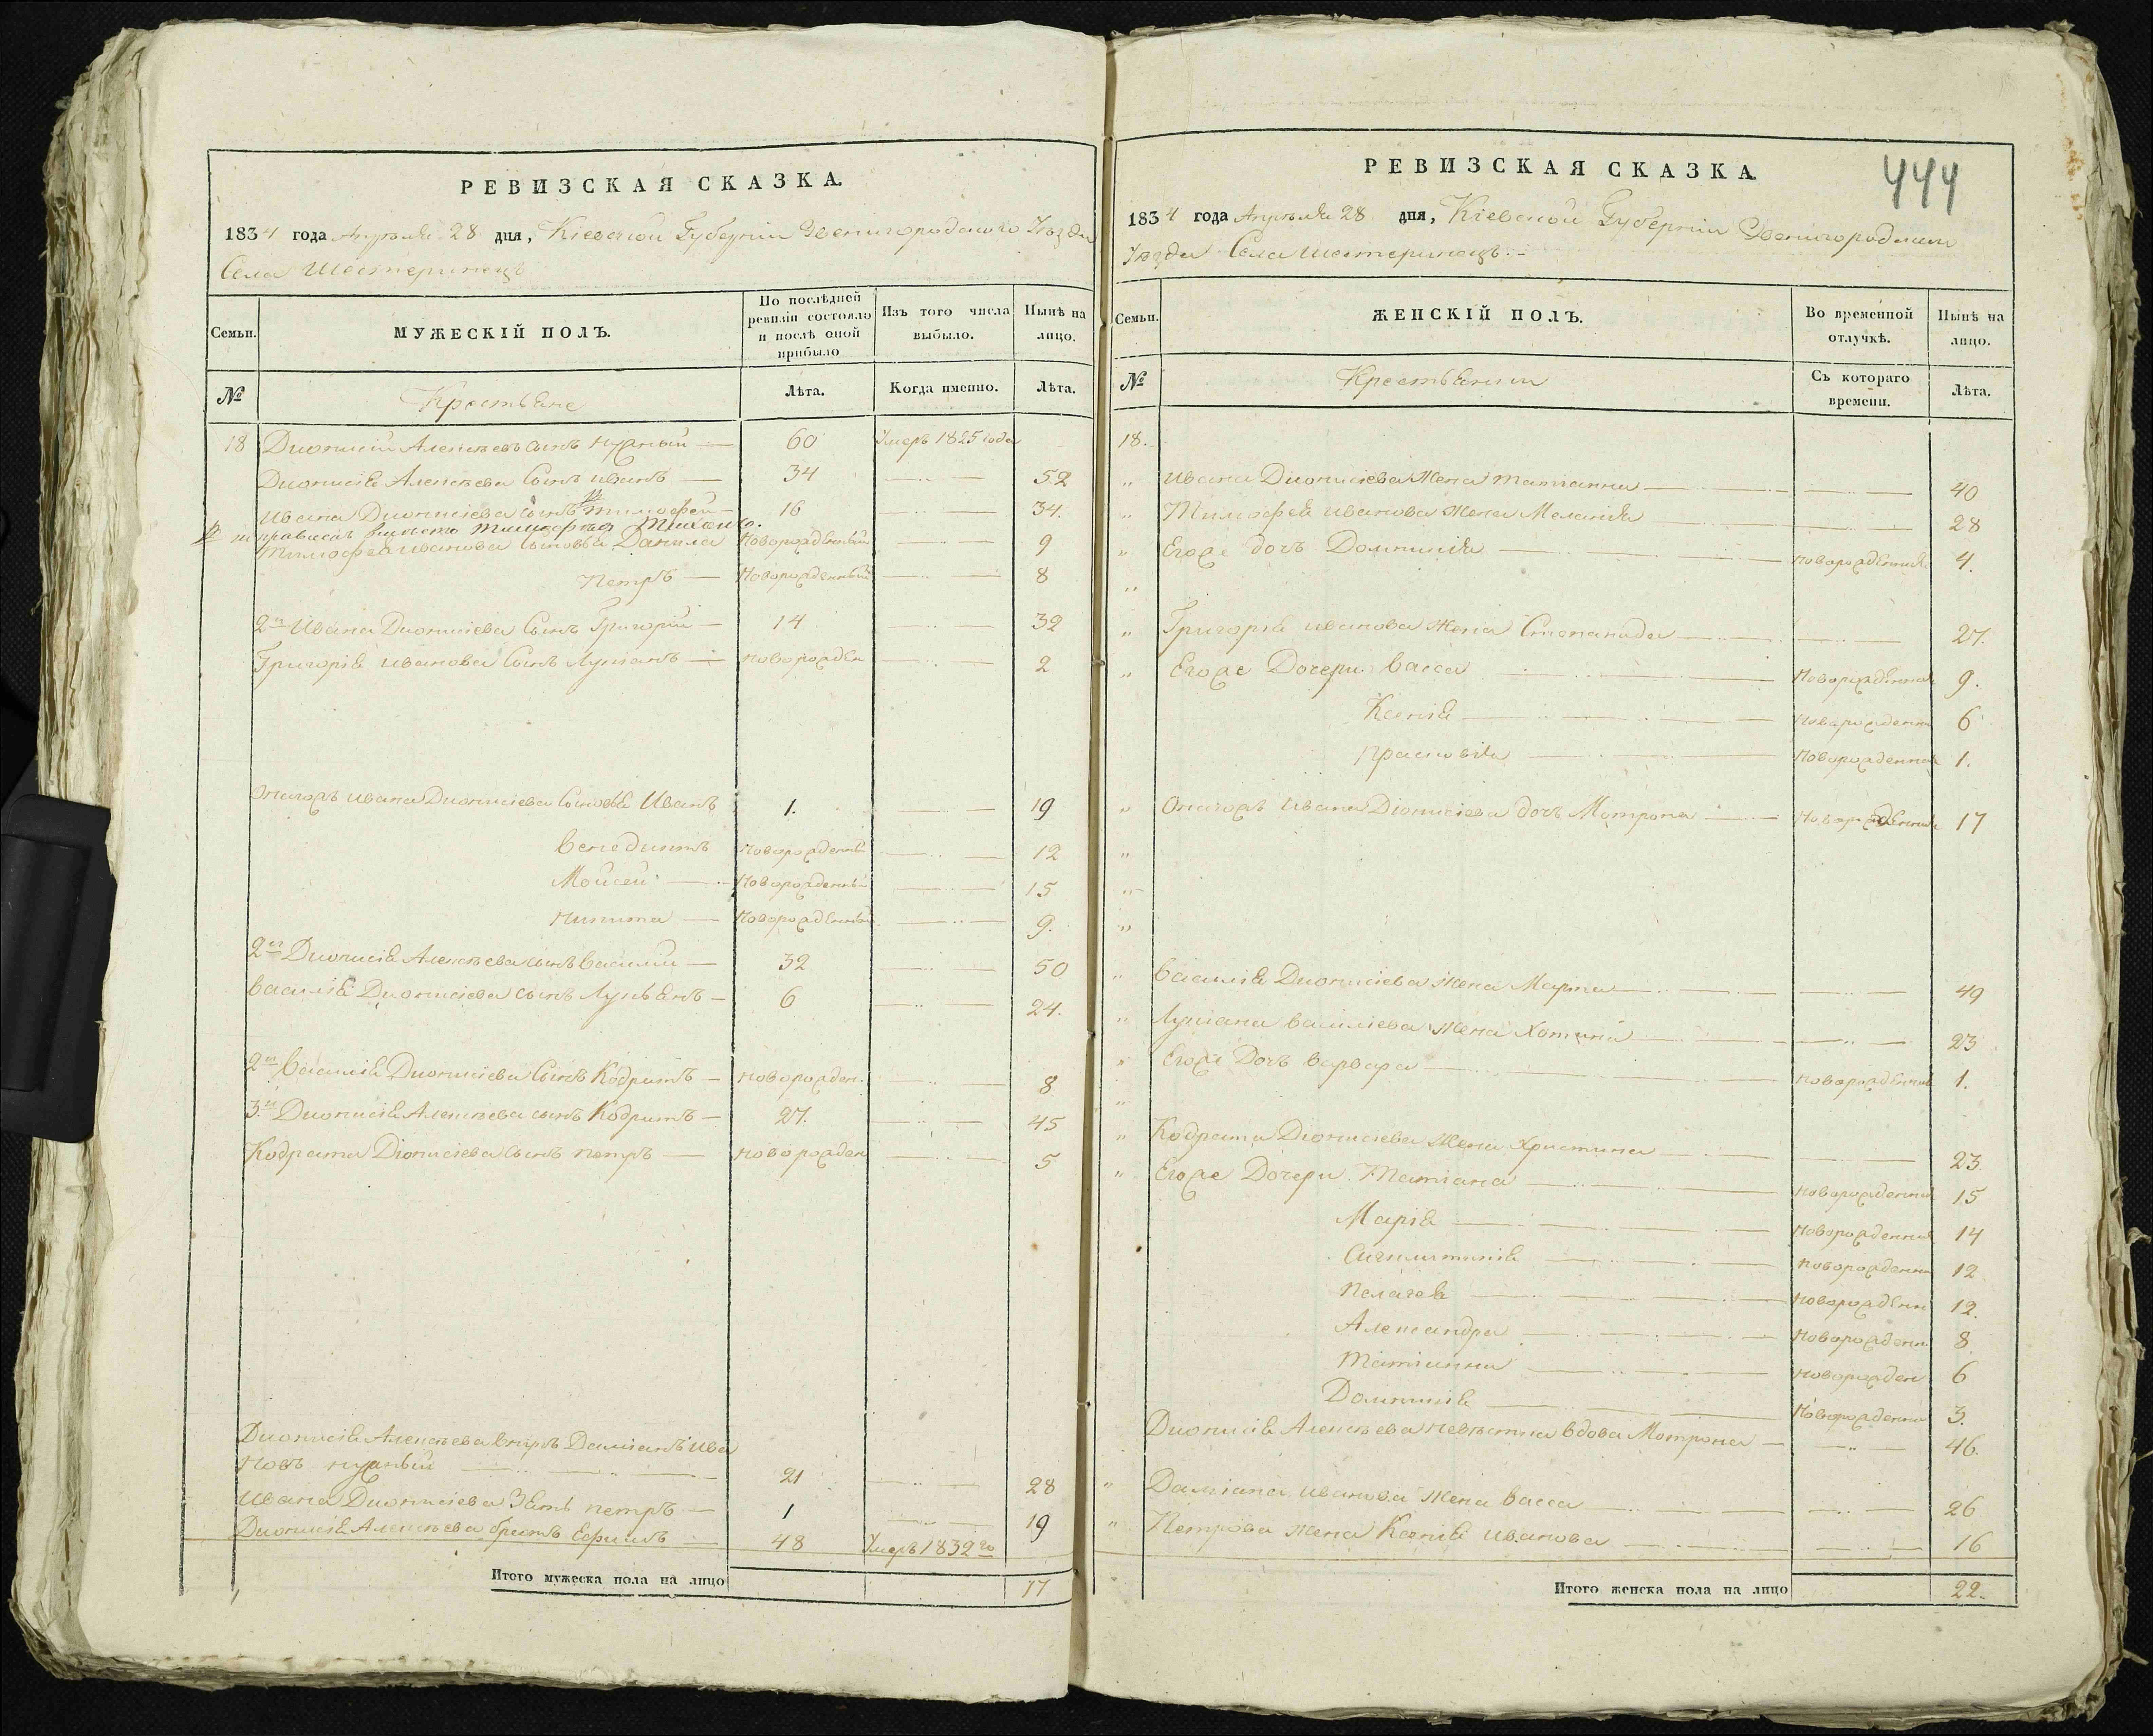 РЕВИЗСКАЯ СКАЗКА.
1834 года Апрѣля 28 дня, Кіевской Губерніи Звенигородского Уѣзда
Села Шестеринецъ
Семьи.
МУЖЕСКІЙ ПОЛЪ.
По послѣдней ревизіи состояло и послѣ оной прибыло
Изъ того числа выбыло.
Нынѣ на лицо.
№ Крестьяне Лѣта. Когда именно. Лѣта.
18 Дионисій Алексѣевъ сынъ 60 Умеръ 1825 года
Дионисія Алексѣева Сынъ Иванъ 34 52
Ивана Дионисіева Сынъ Тимофей 16 34.
вмѣсто Тимофея
Тимофея Иванова Сыновья Данила Новорожденный 9
Петръ Новорожденный 8
2й Ивана Дионисіева Сынъ Григорій 14 32
Григорія Иванова Сынъ Лукіанъ новорожден 2
Ивана Дионисіева Сыновья Иванъ 1. 19
Венедиктъ новорожденный 12
Мойсей Новорожденный 15
Никита Новорожденный 9.
2й Дионисія Алексѣева сынъ Василий 32 50
Василія Дионисіева сынъ Лукьянъ 6 24.
2й Василія Дионисіева Сынъ Кодратъ новорожден. 8
3й Дионисія Алексѣева сынъ Кодратъ 27. 45
Кодрата Діонисіева сынъ петръ новорожден 5
Дионисія Алексѣева внукъ Даміанъ Ива
новъ 21 28
Ивана Дионисіева Зять петръ 1 19
Дионисія Алексѣева братъ Ефимъ 48 Умеръ 1832 го
Итого мужеска пола на лицо 17
444
РЕВИЗСКАЯ СКАЗКА.
1834 года Апрѣля 28 дня, Кіевской Губерніи Звенигородского
Уѣзда Села Шестеринецъ.
Семьи.
ЖЕНСКІЙ ПОЛЪ.
Во временной отлучкѣ.
Нынѣ на лицо.
№ Крестьянки Съ котораго времени. Лѣта.
18.
„ Ивана Дионисіева Жена татіанна 40
„ Тимофея Иванова жена Меланія 28
„ Егоже дочь Домникія новорожденная 4.
„
„ Григорія Иванова Жена Степанида 27.
„ Егоже Дочери Васса Новорожденная 9.
Ксенія новорожденна 6
прасковія Новорожденная 1.
„ Ивана Діонисіева дочь Мотрона Новорожденная 17
„
„
„
„ Василія Дионисіева Жена Марта 49
„ Лукіана Василіева Жена 23
„ Егоже Дочь варвара новорожденная 1.
„
„ Кодрата Діонисіева Жена Христина 23.
„ Егоже Дочери Татіана новорожденна 15
Марія Новорожденная 14
новорожденна 12
Пелагея новорожденн 12.
Александра новорожденн 8
Татіанна новорожден 6
Домникія Новорожденна 3.
Дионисія Алексѣева невѣстка вдова Мотрона 46.
„ Даміана Иванова Жена Васса 26
„ Петрова жена Ксенія Иванова 16
Итого женска пола на лицо 22.